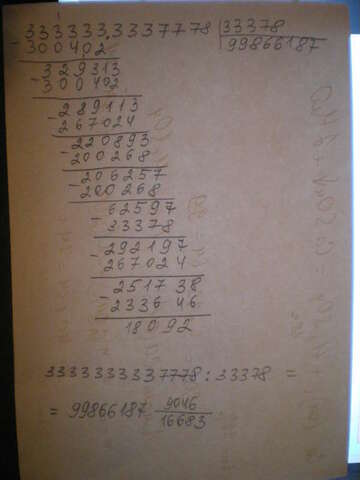 -333333,3337778 |33378
300402 |99866187
-329313
300402
-289113
267024
-220893
200268
-206257
200268
-62597
33378
-292197
267024
-251738
233646
18092
3333333337778 : 33378 =
= 99866187 9046/16683